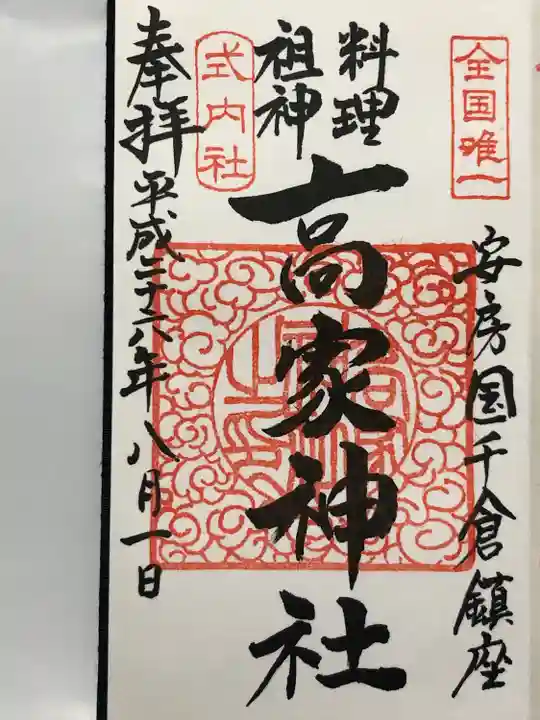 全国唯一
安房国千倉鎮座
料理
祖神
高家神社
式内社
奉拝
平成二十六年八月一日